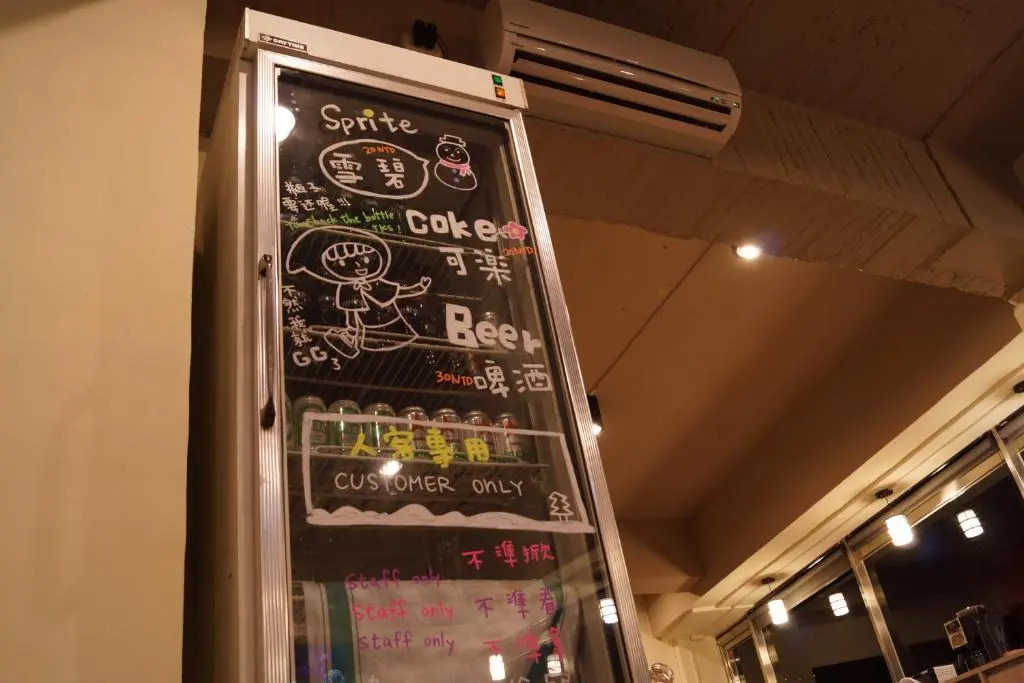 DAYTIME
Sprite
20NTD
雪碧
瓶子
要还喔!!
the bottle
Coke
20NTD
可楽
不然我就GG3
Beer
30NTD
啤酒
人客專用
CUSTOMER ONLY
不準掀
Staff only
不準看
Staff only
不準
Staff only